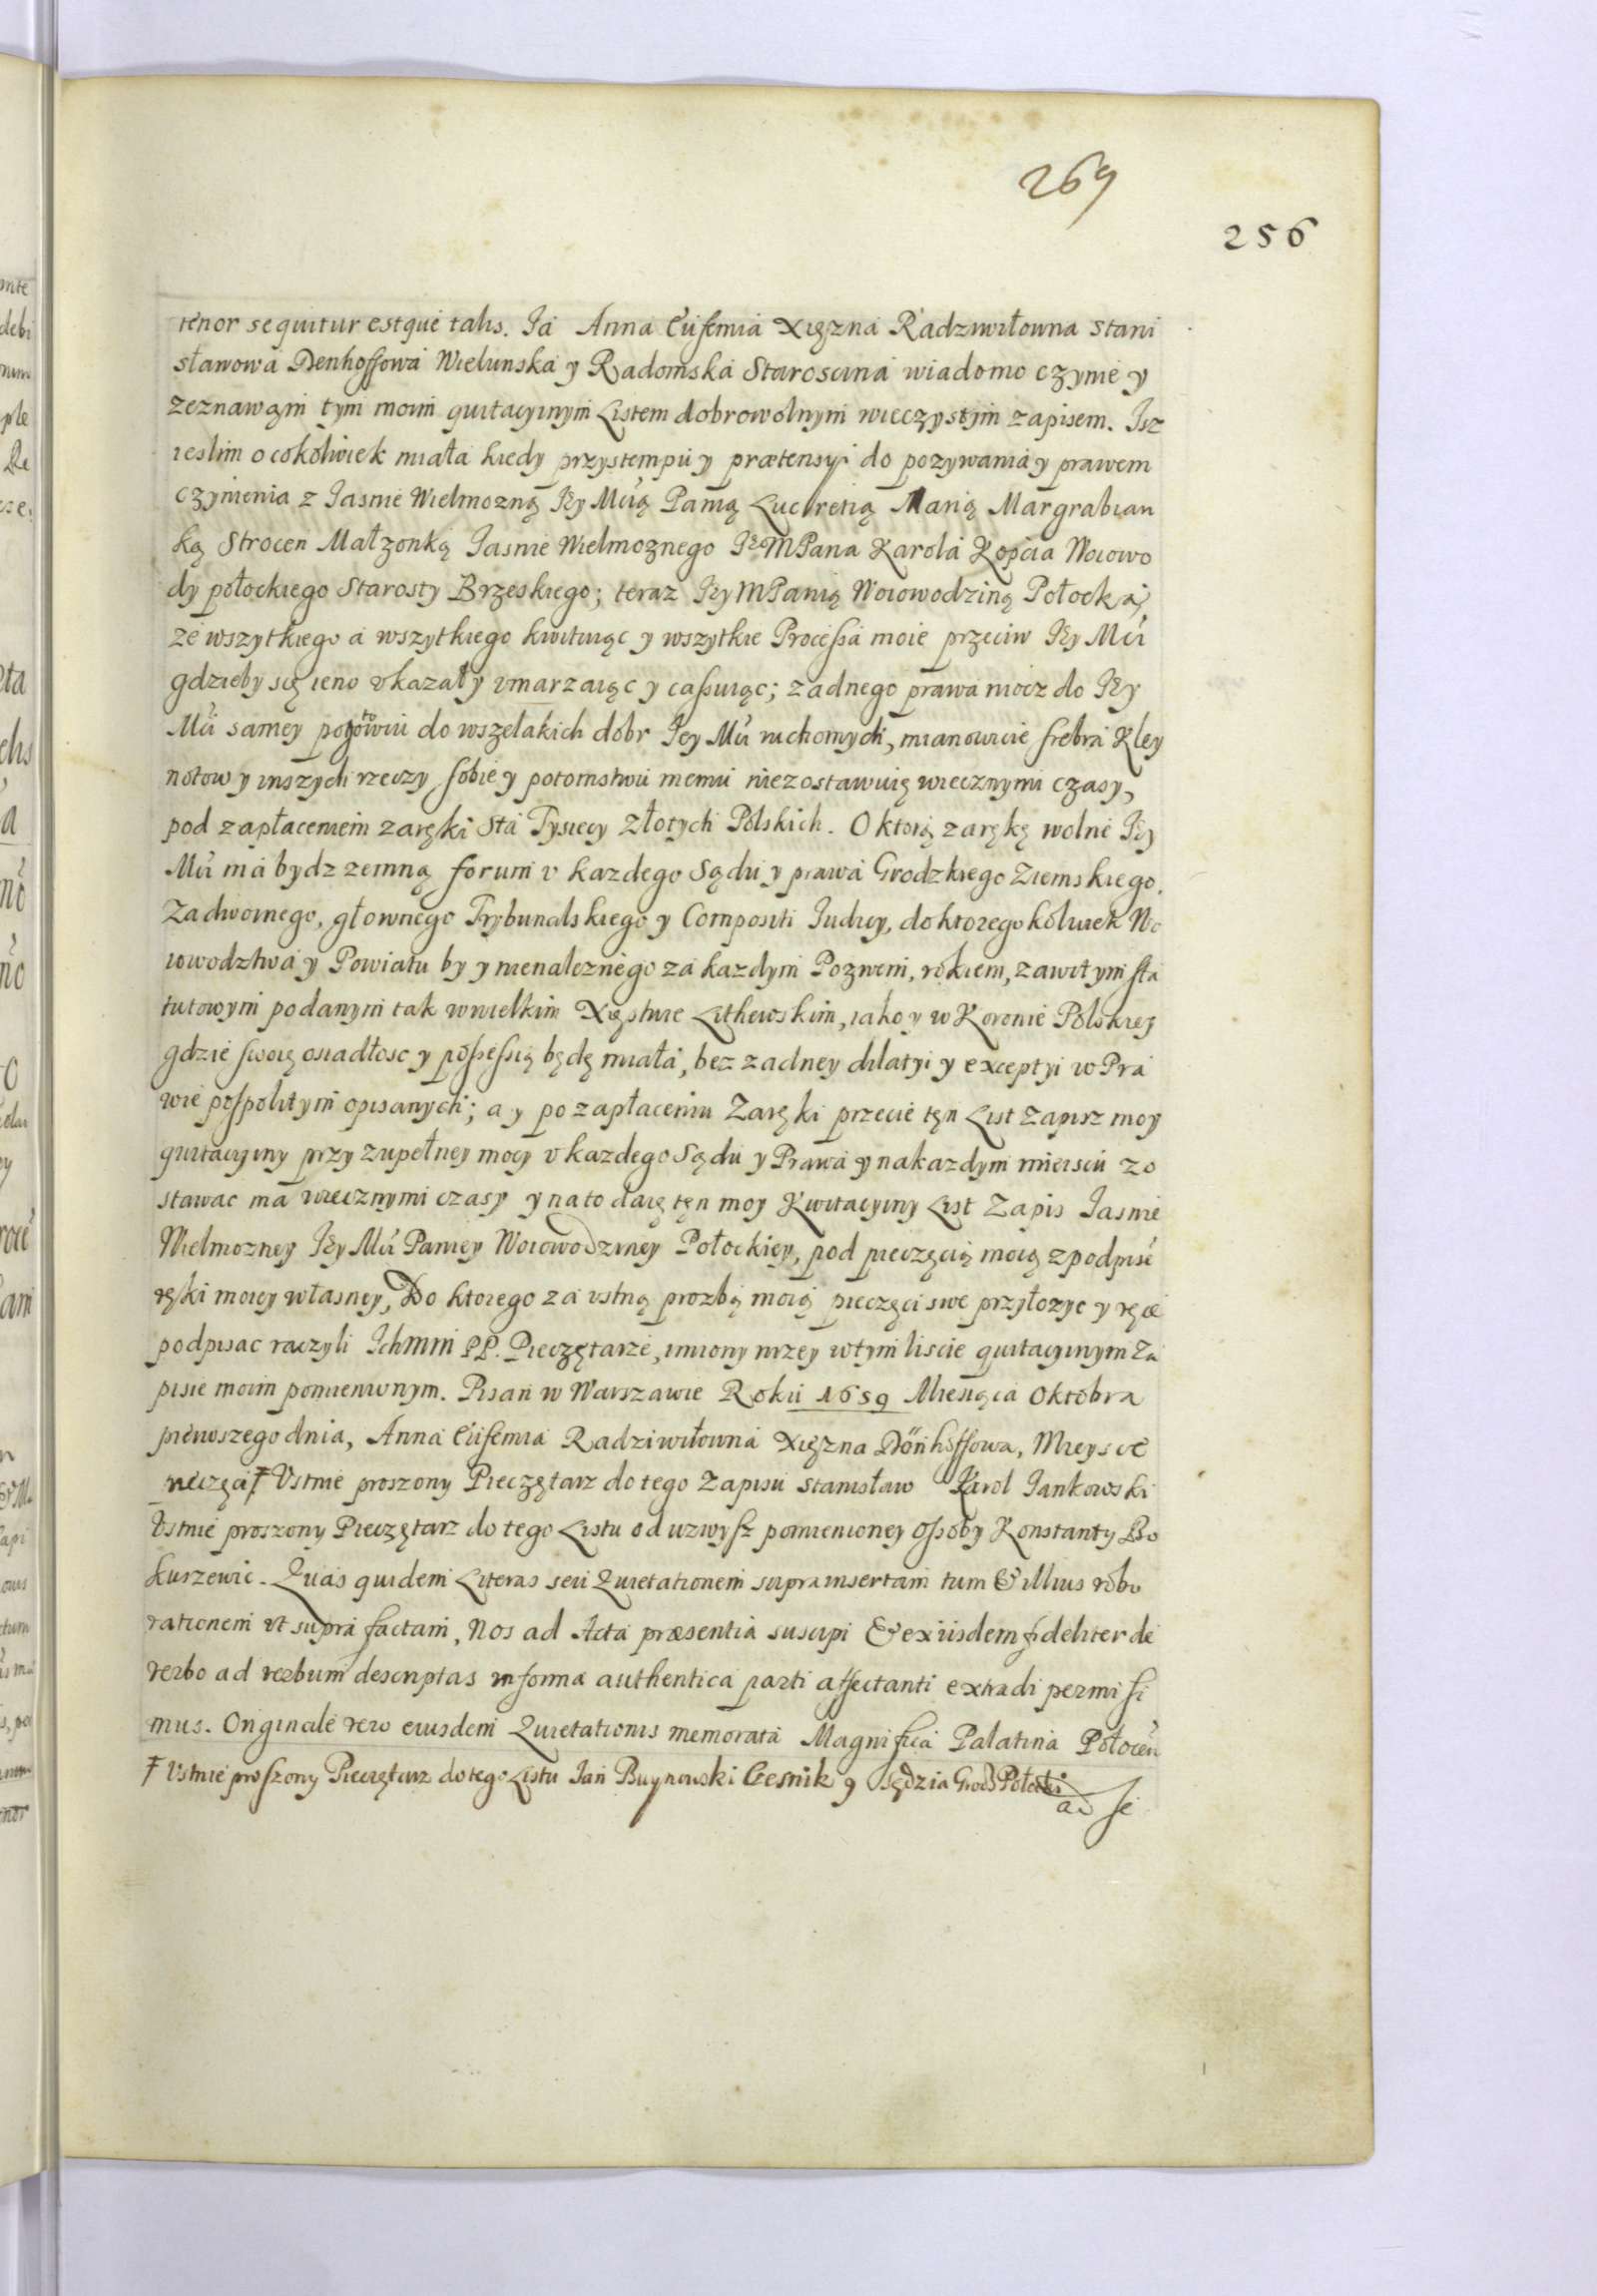 269
256
tenor sequitur estque talis. Ja Anna Eufemia Xięzna Radziwiłowna Stani
sławowa Denhoffowa Wielunska y Radomska Staroscina wiadomo czynie y
zeznawam tym moim quitacyinym Listem dobrowolnym wieczystym zapisem. Isz
ieslim o cokolwiek miała kiedy przystempu y prætensyi do pozywania y prawem
czynienia z Jasnie Wielmozną Jey Mcią Panią Lucretią Marią Margrabian
ką Strocen Małzonką Jasnie Wielmoznego Jeo MPana Karola Kopcia Woiowo
dy połockiego Starosty Brzeskiego; teraz Jey MPanią Woiowodziną Połocką,
ze wszytkiego a wszytkiego kwituiąc y wszytkie Processa moie przeciw Jey Mci
gdzieby się ieno vkazały vmarzaiąc y cassuiąc; zadnego prawa niocz do Jey
Mci samey pogotowiu do wszelakich dobr Jey Mci ruchomych, mianowicie srebra Kley
notow y inszych rzeczy sobie y potomstwu memu niezostawuię wiecznymi czasy,
pod zapłaceniem zaręki Sta Tysięcy Złotych Polskich. O ktorą zarękę wolne Jey
Mci ma bydz zemną forum v kazdego Sądu y prawa Grodzkiego Ziemskiego.
Zadwornego, głownego Trybunalskiego y Compositi Judicy, do ktoregokolwiek Wo
iowodztwa y Powiatu by y nienaleznego za kazdym Pozwem, rokiem, zawitym sta
tutowym podanym tak wwielkim Xięstwie Lithewskim, iako y w Koronie Polskiey
gdzie swoię osiadłosc y possessią będę miała, bez zadney dilatyi y exceptyi w Pra
wie pospolitym opisanych; a y po zapłaceniu Zaręki przecie tęn List Zapisz moy
quitacyiny przy zupełney mocy v kazdego Sądu y Prawa y na kazdym mieiscu zo
stawac ma wiecznymi czasy y na to daię tęn moy Kwitacyiny List Zapis Jasnie
Wielmozney Jey Mci Paniey Woiowodziney Połockiey, pod pieczęcią moią z podpise
ręki moiey własney, Do ktorego za vstną prozbą moią pieczęci swe przyłozyc y ręce
podpisac raczyli IchMM PP. Pieczętarze, imiony nizey wtym liscie quitacyinym Za
pisie moim pomienionym. Pisan w Warszawie Roku 1659 Miesiąca Oktobra
pierwszego dnia, Anna Eufemia Radziwiłowna Xięzna Dönhoffowa, Mieysce
pieczęci Ŧ Vstnie proszony Pieczętarz do tego Zapisu Stanisław Karol Jankowski
Vstnie proszony Pieczętarz do tego Listu od uzwysz pomienioney Ossoby Konstanty Bo
kurzewic. Quas quidem Literas seu Quietationem suprainsertam tum & illius robo
rationem ut supra factam, Nos ad Acta præsentia suscipi & ex iisdem fideliter de
verbo ad verbum descriptas in forma authentica parti affectanti extradi permisi
mus. Originale vero eiusdem Quietationis memorata Magnifica Palatina Połocen
Ŧ Vstnie proszony Pieczętarz do tego Listu Jan Buynowski Czesnik y Sędzia Grodz Połocki
ad se